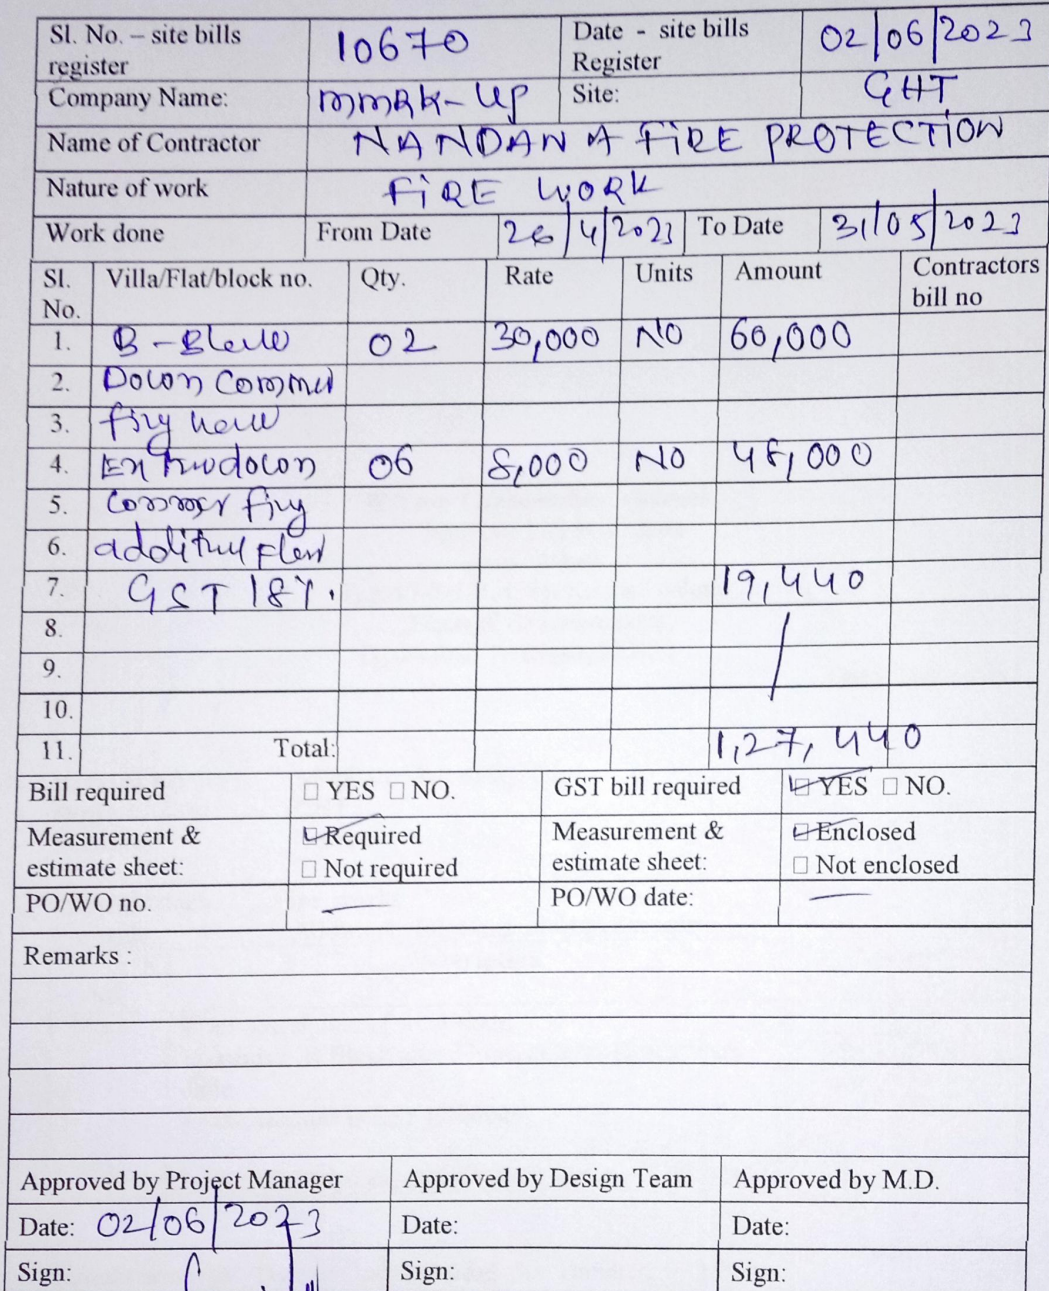 Sl. No. – site bills register 10670 Date - site bills Register 02/06/2023
Company Name: Site: GHT
Name of Contractor NANDANA FiRE PROTECTiON
Nature of work FiRE WORK
Work done From Date 26/4/2023 To Date 31/05/2023
Sl. No. Villa/Flat/block no. Qty. Rate Units Amount Contractors bill no
1. B - 02 30,000 NO 60,000
2. Down
3.
4. 06 8,000 NO 48,000
5.
6.
7. GST 18%. 19,440
8.
9.
10.
11. Total: 1,27,440
Bill required □ YES □ NO. GST bill required □ YES □ NO.
Measurement & estimate sheet: □ Required □ Not required Measurement & estimate sheet: □ Enclosed □ Not enclosed
PO/WO no. — PO/WO date: —
Remarks :
Approved by Project Manager Approved by Design Team Approved by M.D.
Date: 02/06/2023 Date: Date:
Sign: Sign: Sign: